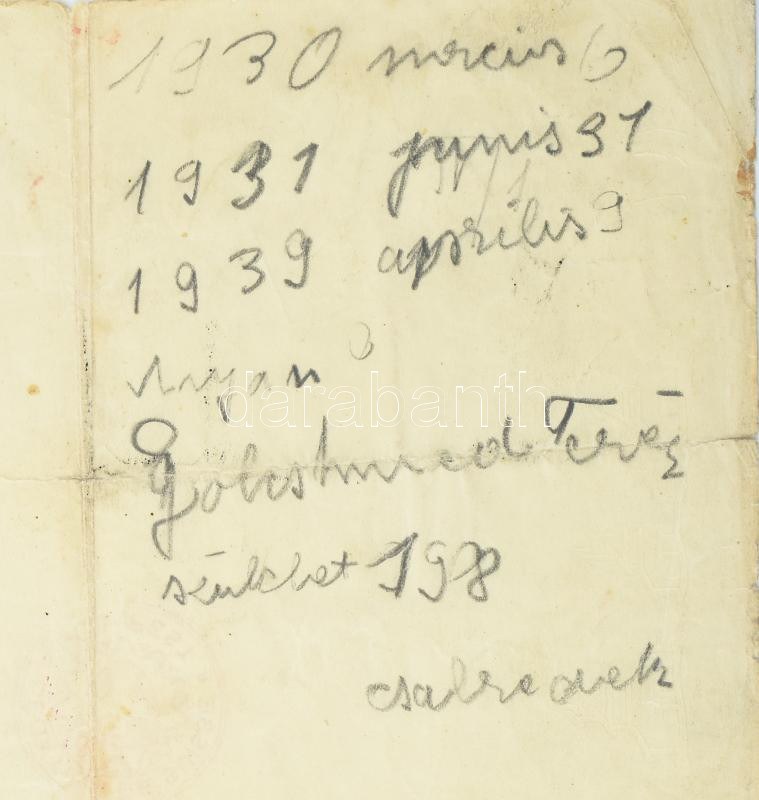 1930 március 6
1931 junis 31
1939 aprilis 9
Anyám
Golcshmied Teréz
szükhet 198
csabrendek
darabanth